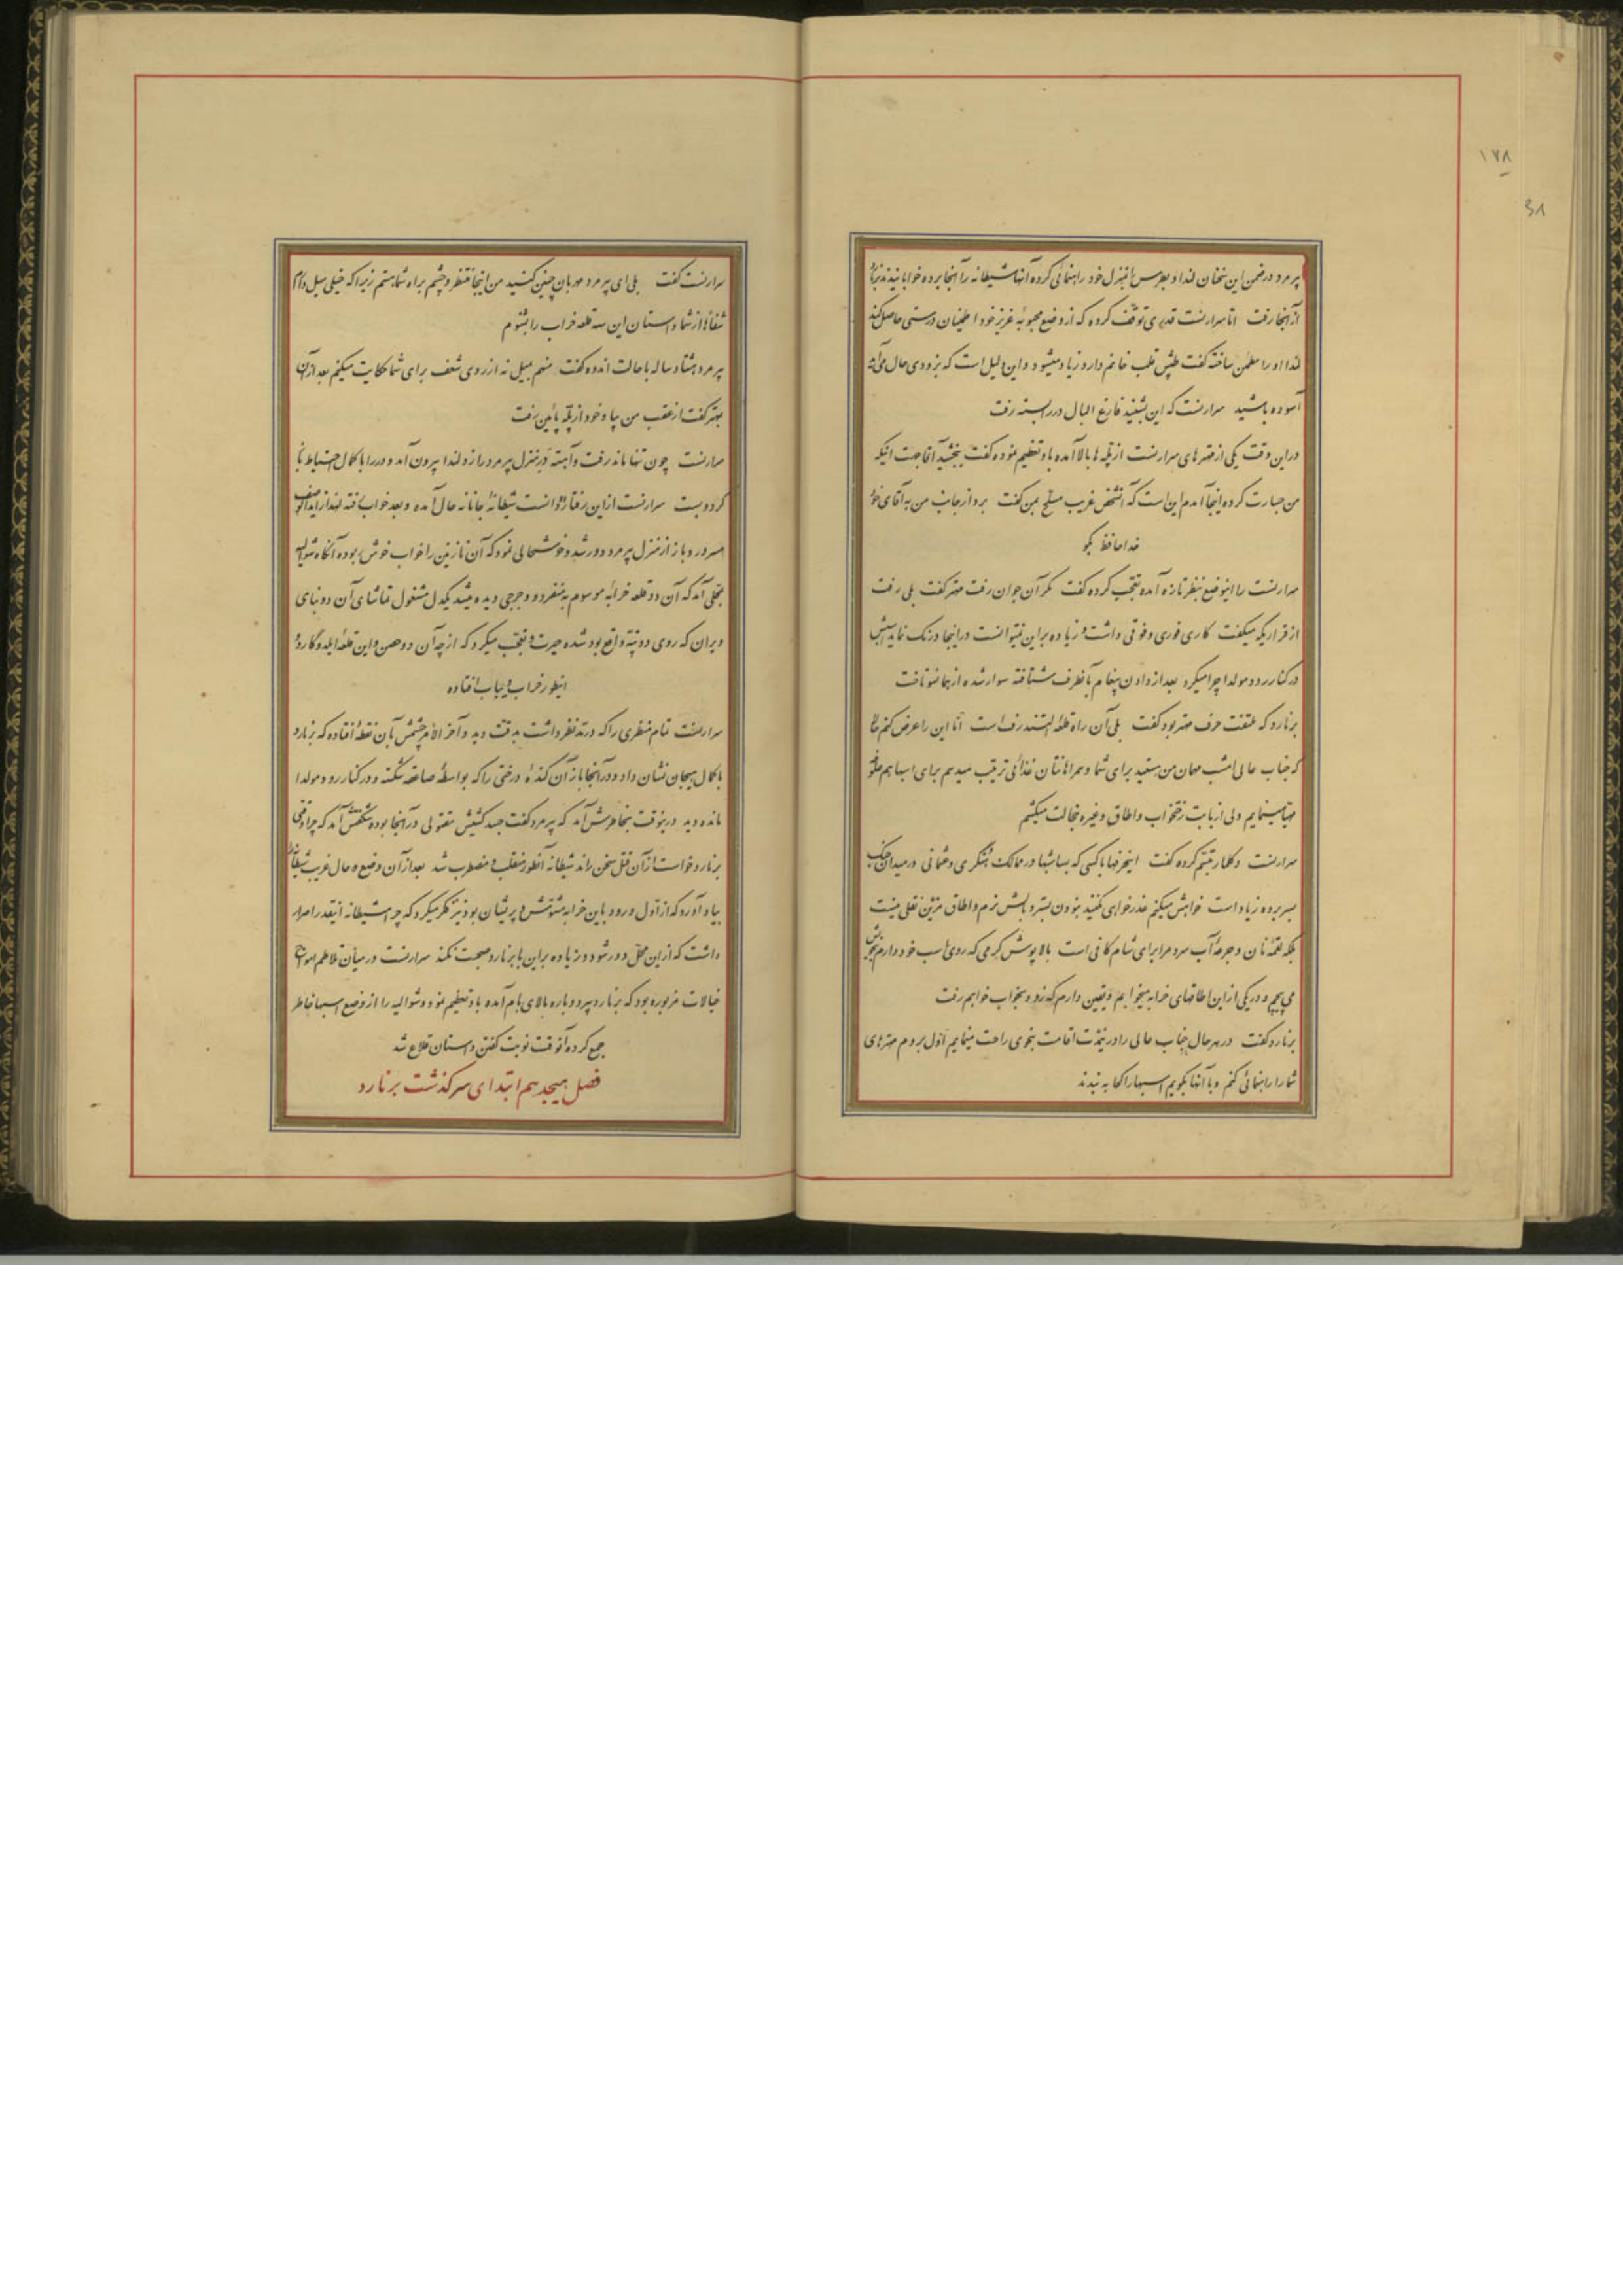 ۱۷۸
۳۸
پیرمرد در ضمن این سخنان لندا و بطرس را بمنزل خود راهنمائی کرده آنها شیطانه را آنجا برده خوابانیدند
از آنجا رفت امّا سرارنست قدری توقف کرده که از وضع محبوبهٔ عزیز خود اطمینان درستی حاصل کند
لندا او را مطمئن ساخته گفت طپش قلب خانم دارد زیاد میشود و این دلیل است که بزودی حال می‌آید
آسوده باشید سرارنست که این بشنید فارغ البال در را بسته رفت
در این وقت یکی از مهترهای سرارنست از پلّه ها بالا آمده باو تعظیم نموده گفت ببخشید آقا جهت اینکه
من جسارت کرده اینجا آمدم این است که آنشخص غریب مسلّح بمن گفت برو از جانب من به آقای خود
خداحافظ بگو
سرارنست را اینوضع بنظر تازه آمده تعجّب کرده گفت مگر آن جوان رفت مهتر گفت بلی رفت
از قراریکه میگفت کاری فوری و فوتی داشت و زیاده براین نمیتوانست در اینجا درنگ نماید اسبش
در کنار رود مولدا چرا میکرد بعد از دادن پیغام بآنطرف شتافته سوار شده از بها نسو تاخت
برنارد که ملتفت حرف مهتر بود گفت بلی آن راه قلعهٔ التندرف است امّا این را عرض کنم حالا
که جناب عالی امشب مهمان من هستید برای شما و همراهانتان غذائی ترتیب میدهم برای اسبها هم علوفه
مهیّا مینمایم ولی از بابت رختخواب و اطاق و غیره خجالت میکشم
سرارنست دکلمار تبسّم کرده گفت اینحرفها با کسی که بسا شبها در ممالک هنگری و عثمانی در میدان جنگ
بسر برده زیاد است خواهش میکنم عذرخواهی نکنید بنودن بستر و بالش نرم و اطاق مزیّن نقلی نیست
بلکه لقمهٔ نان و جرعهٔ آب سرد مرا برای شام کافی است بالاپوش گرمی که روی اسب خود دارم بخودش
می پیچم و در یکی از این اطاقهای خرابه میخوابم و یقین دارم که زود بخواب خواهم رفت
برنارد گفت در هر حال جناب عالی را در اینمدّت اقامت بخوبی راحت مینمایم اوّل بروم مهترهای
شما را راهنمائی کنم و بآنها بگویم اسبها را کجا به بندند
سرارنست گفت بلی ای پیرمرد مهربان چنین کنید من اینجا منتظر و چشم براه شما هستم زیرا که خیلی میل دارم
شفاهاً از شما داستان این سه قلعه خراب را بشنوم
پیرمرد هشتاد ساله با حالت اندوه گفت منهم بمیل نه از روی شعف برای شما حکایت میکنم بعد از آن
بمهتر گفت از عقب من بیا و خود از پلّه پائین رفت
سرارنست چون تنها ماند رفت و آهسته در منزل پیرمرد را زد لندا بیرون آمد و در را با کمال احتیاط باز
کرد و بست سرارنست از این رفتار دانست شیطانهٔ جانانه حال آمده و بعد خواب رفته لهذا از
مسرور و باز از منزل پیرمرد دور شد و خوشحالی نمود که آن نازنین را خواب خوش ربوده آنگاه شوالیه
بمحلّی آمد که آن دو قلعه خرابه موسوم به منفرد و و جرجی دیده میشد یکدل مشغول تماشای آن دو بنای
ویران که روی دو تپّه واقع بود شده حیرت و تعجّب میکرد که از چه آن دو حصن و این قلعهٔ ایلدوگارد
اینطور خراب و یباب افتاده
سرارنست تمام منظری را که در مدّ نظر داشت بدقّت دید و آخر الأمر چشمش بآن نقطهٔ افتاده که برنارد
با کمال هیجان نشان داد و در آنجا باز آن کندهٔ درختی را که بواسطهٔ صاعقه شکسته و در کنار رود مولدا
مانده دید در ینوقت بخاطرش آمد که پیرمرد گفت جسد کشیش مقتولی در آنجا بوده شگفتش آمد که چرا وقتی
برنارد خواست از آن قتل سخن راند شیطانه آنطور منقلب و مضطرب شد بعد از آن وضع و حال غریب شیطانه را
بیاد آورد که از اوّل ورود باین خرابه مشوّش و پریشان بود نیز فکر میکرد که چرا شیطانه اینقدر اصرار
داشت که از این محلّ دور شود و زیاده براین با برنارد صحبت نکند سرارنست در میان تلاطم امواج
خیالات مزبوره بود که برنارد پیر دوباره بالای بام آمده باو تعظیم نمود و شوالیه را از وضع اسبها خاطر
جمع کرده آنوقت نوبت گفتن داستان قلاع شد
فصل هیجدهم ابتدای سرگذشت برنارد